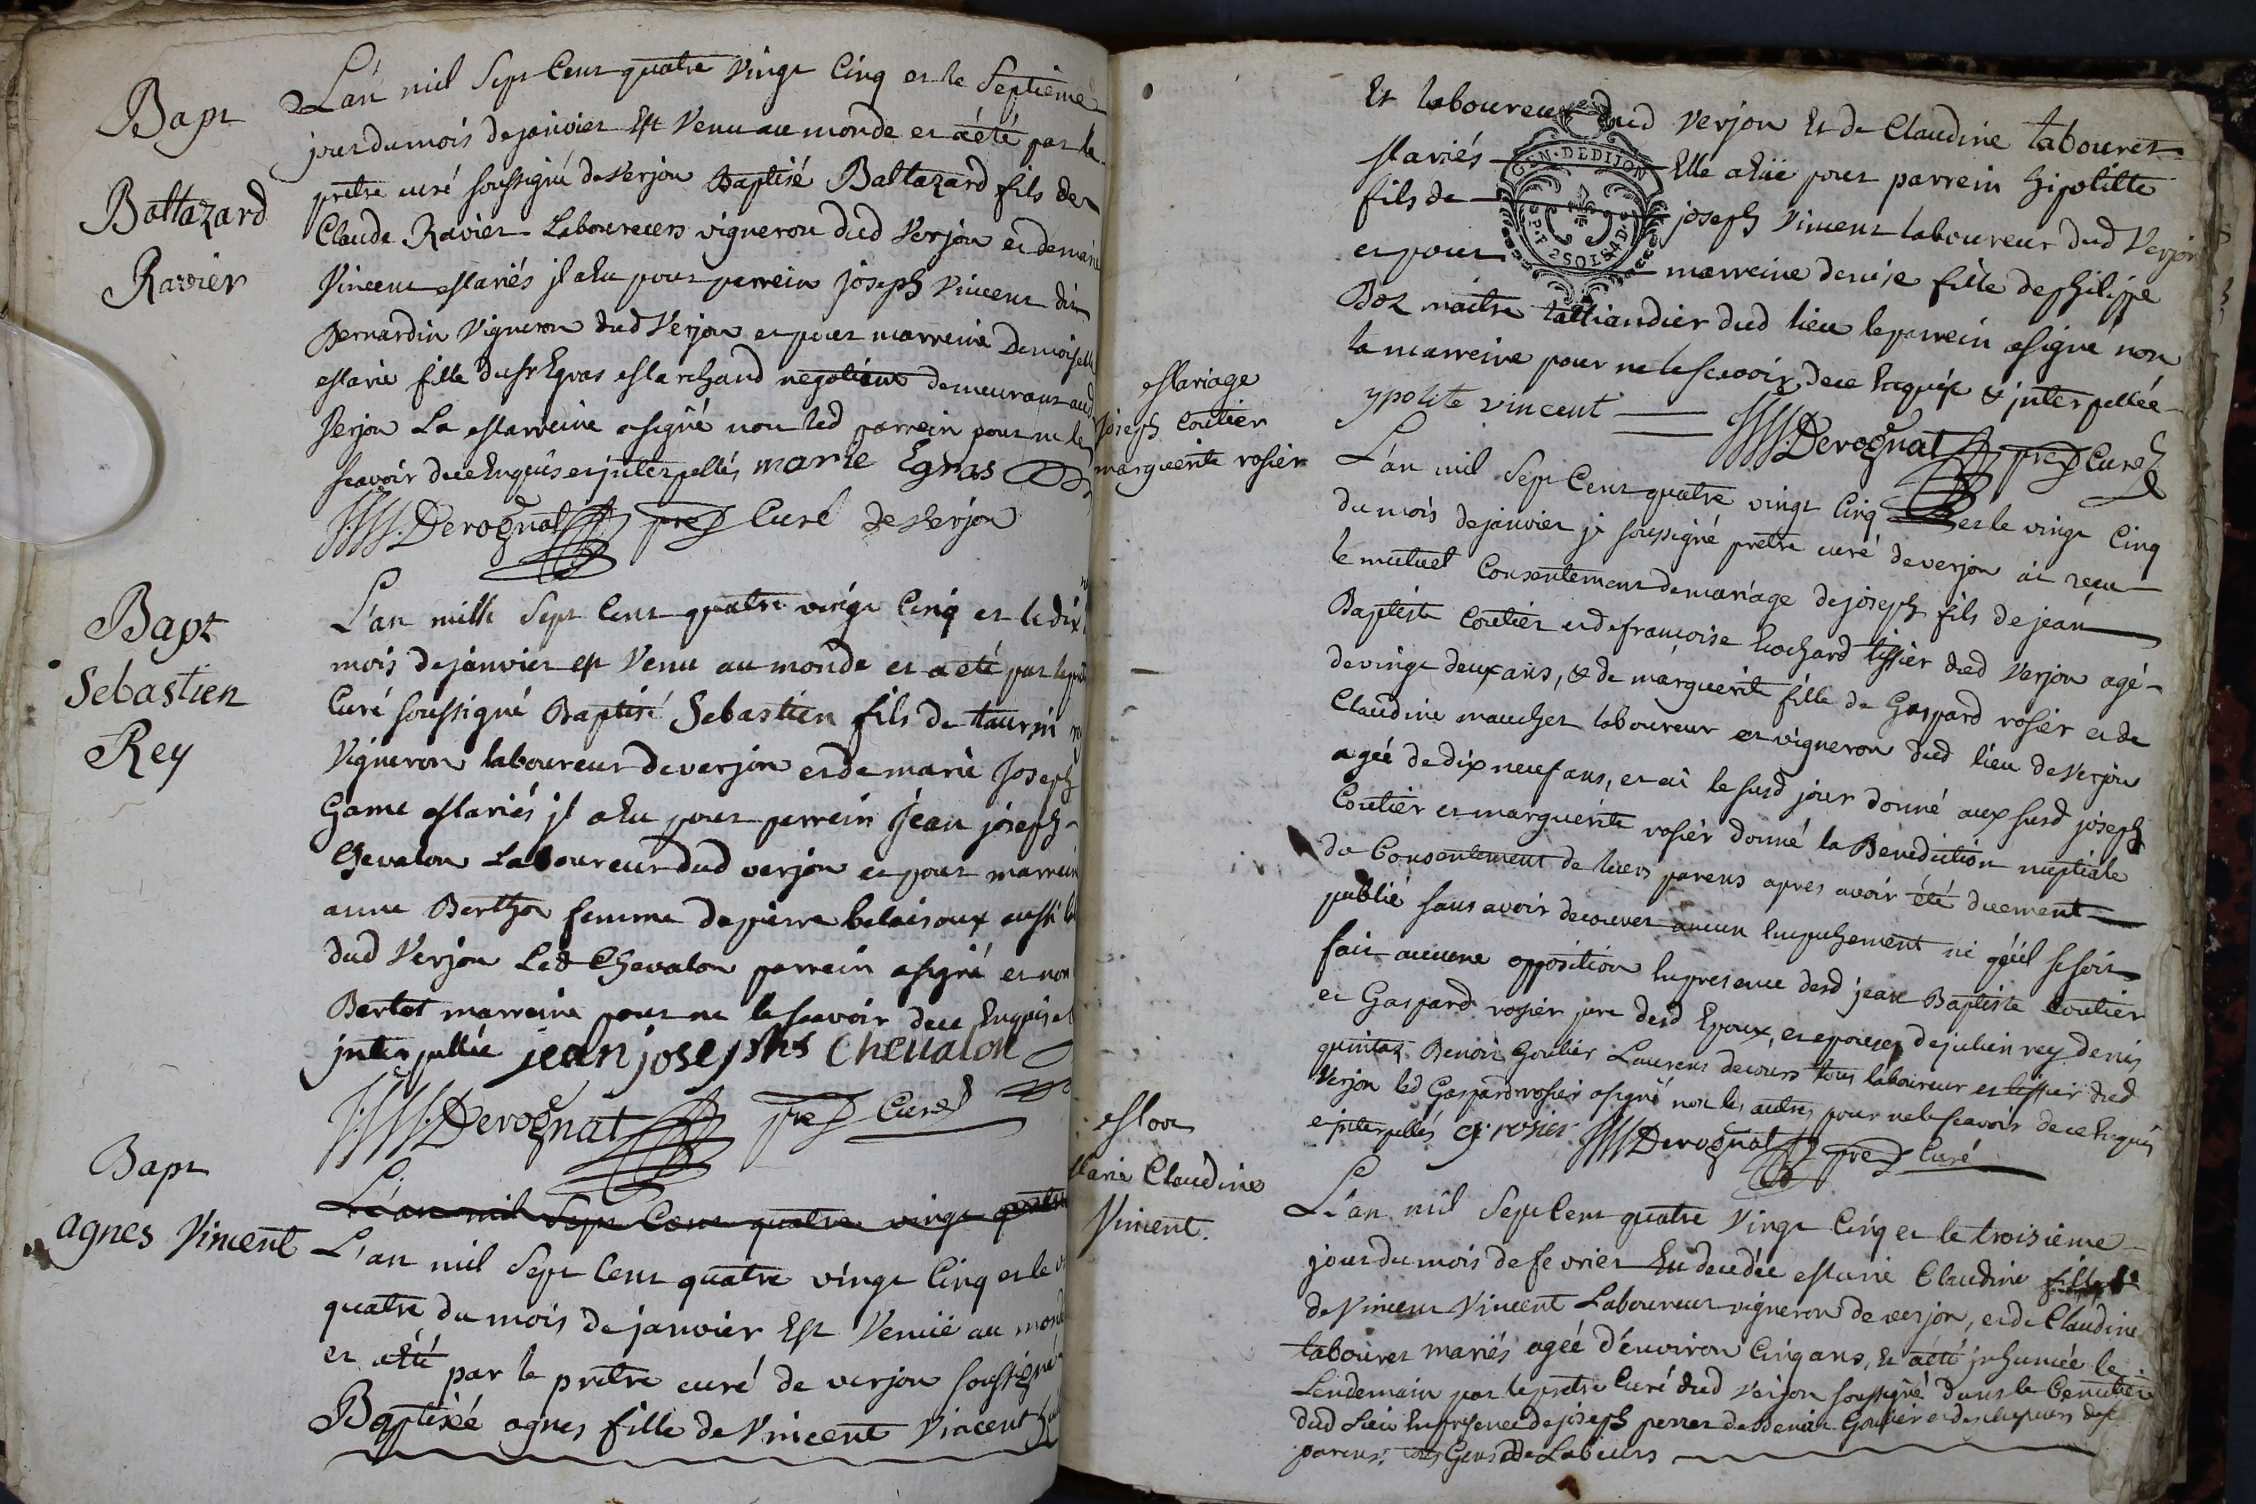 Bapt
Baltazard
Ravier
L'an mil Sept Cent quatre vingt Cinq et le Septieme
jour du mois de janvier Est venu au monde et a été par le
prêtre curé soussigné de verjon Baptisé Baltazard fils de
Claude Ravier Laboureur vigneron dud Verjon et de marie
Vincent Mariés il a Eu pour parrein joseph Vincent dit
Bernardin Vigneron dud Verjon et pour marreine Demoiselle
Marie fille du Sr Egras Marchand négotiant demeurant aud
Verjon La Marreine a signé non led parrein pour ne le
scavoir de ce Enquis et interpellés marie Egras
Derognat pre Curé de Verjon
Bapt
Sebastien
Rey
L'an mille Sept Cent quatre vingt Cinq et le dix
mois de janvier est Venu au monde et a été par le
Curé soussigné Baptisé Sebastien fils de taurin
Vigneron laboureur de verjon et de marie Joseph
Game Mariés il a Eu pour parrein jean joseph
Chevalon Laboureur dud verjon et pour marreine
anne Berthet femme de pierre belaisoux aussi
dud Verjon Led Chevalon parrein a signé et non
Bertet marreine pour ne le scavoir de ce Enquis et
interpellée jean josephs Chevalon
Derognat pre Curé
Bapt
agnes Vincent
L'an mil Sept Cent quatre vingt quatre
L'an mil Sept Cent quatre vingt Cinq et le
quatre du mois de janvier Est Venue au monde
et a été par le prêtre curé de verjon soussigné
Baptisée agnes fille de Vincent Vincent
Et laboureur dud Verjon Et de Claudine tabouret
Mariés Elle a Eue pour parrein hipolitte
fils de joseph Vincent laboureur dud Verjon
et pour marreine denise fille de philippe
Boz maitre talliandier dud lieu le parrein a signé non
la marreine pour ne le scavoir de ce Enquise & interpellée
ypolite vincent
Derognat pre Curé
GEN. DE DIJON
Mariage
joseph coutier
marguerite rosier
L'an mil Sept Cent quatre vingt Cinq et le vingt Cinq
du mois de janvier je soussigné prêtre curé de verjon ai recu
le mutuel Consentement de mariage de joseph fils de jean
Baptiste Coutier et de francoise Cochard tissier dud Verjon agé
de vingt deux ans, & de marguerite fille de Gaspard rosier et de
Claudine mauchet laboureur et vigneron dud lieu de Verjon
agée de dix neuf ans, et ai le susd jour donné aux susd joseph
Coutier et marguerite rosier donné la Benediction nuptiale
du Consentement de leurs parens apres avoir été duement
publié sans avoir decouvert aucun Empechement ni qu'il se soit
fait aucune opposition En presence desd jean Baptiste Coutier
et Gaspard rosier pere desd Epoux, et epouse, de julien rey denis
quintaz Benoit Goutier Laurens decours tous laboureur et tissier dud
Verjon led Gaspard rosier a signé non les autres pour ne le scavoir de ce Enquis
et interpellés g: rosier Derognat pre Curé
Mort
Marie Claudine
Vincent.
L'an mil Sept Cent quatre Vingt Cinq et le troisieme
jour du mois de fevrier Est decedée Marie Claudine fille
de Vincent Vincent Laboureur vigneron de verjon, et de Claudine
tabouret mariés agée d'environ Cinq ans, Et a été inhumée le
Lendemain par le prêtre Curé dud Verjon soussigné dans le Cemetiere
dud Lieu En presence de joseph perret de Benoit Goutier et de plusieurs de ses
parens, tous Gens de Labeurs